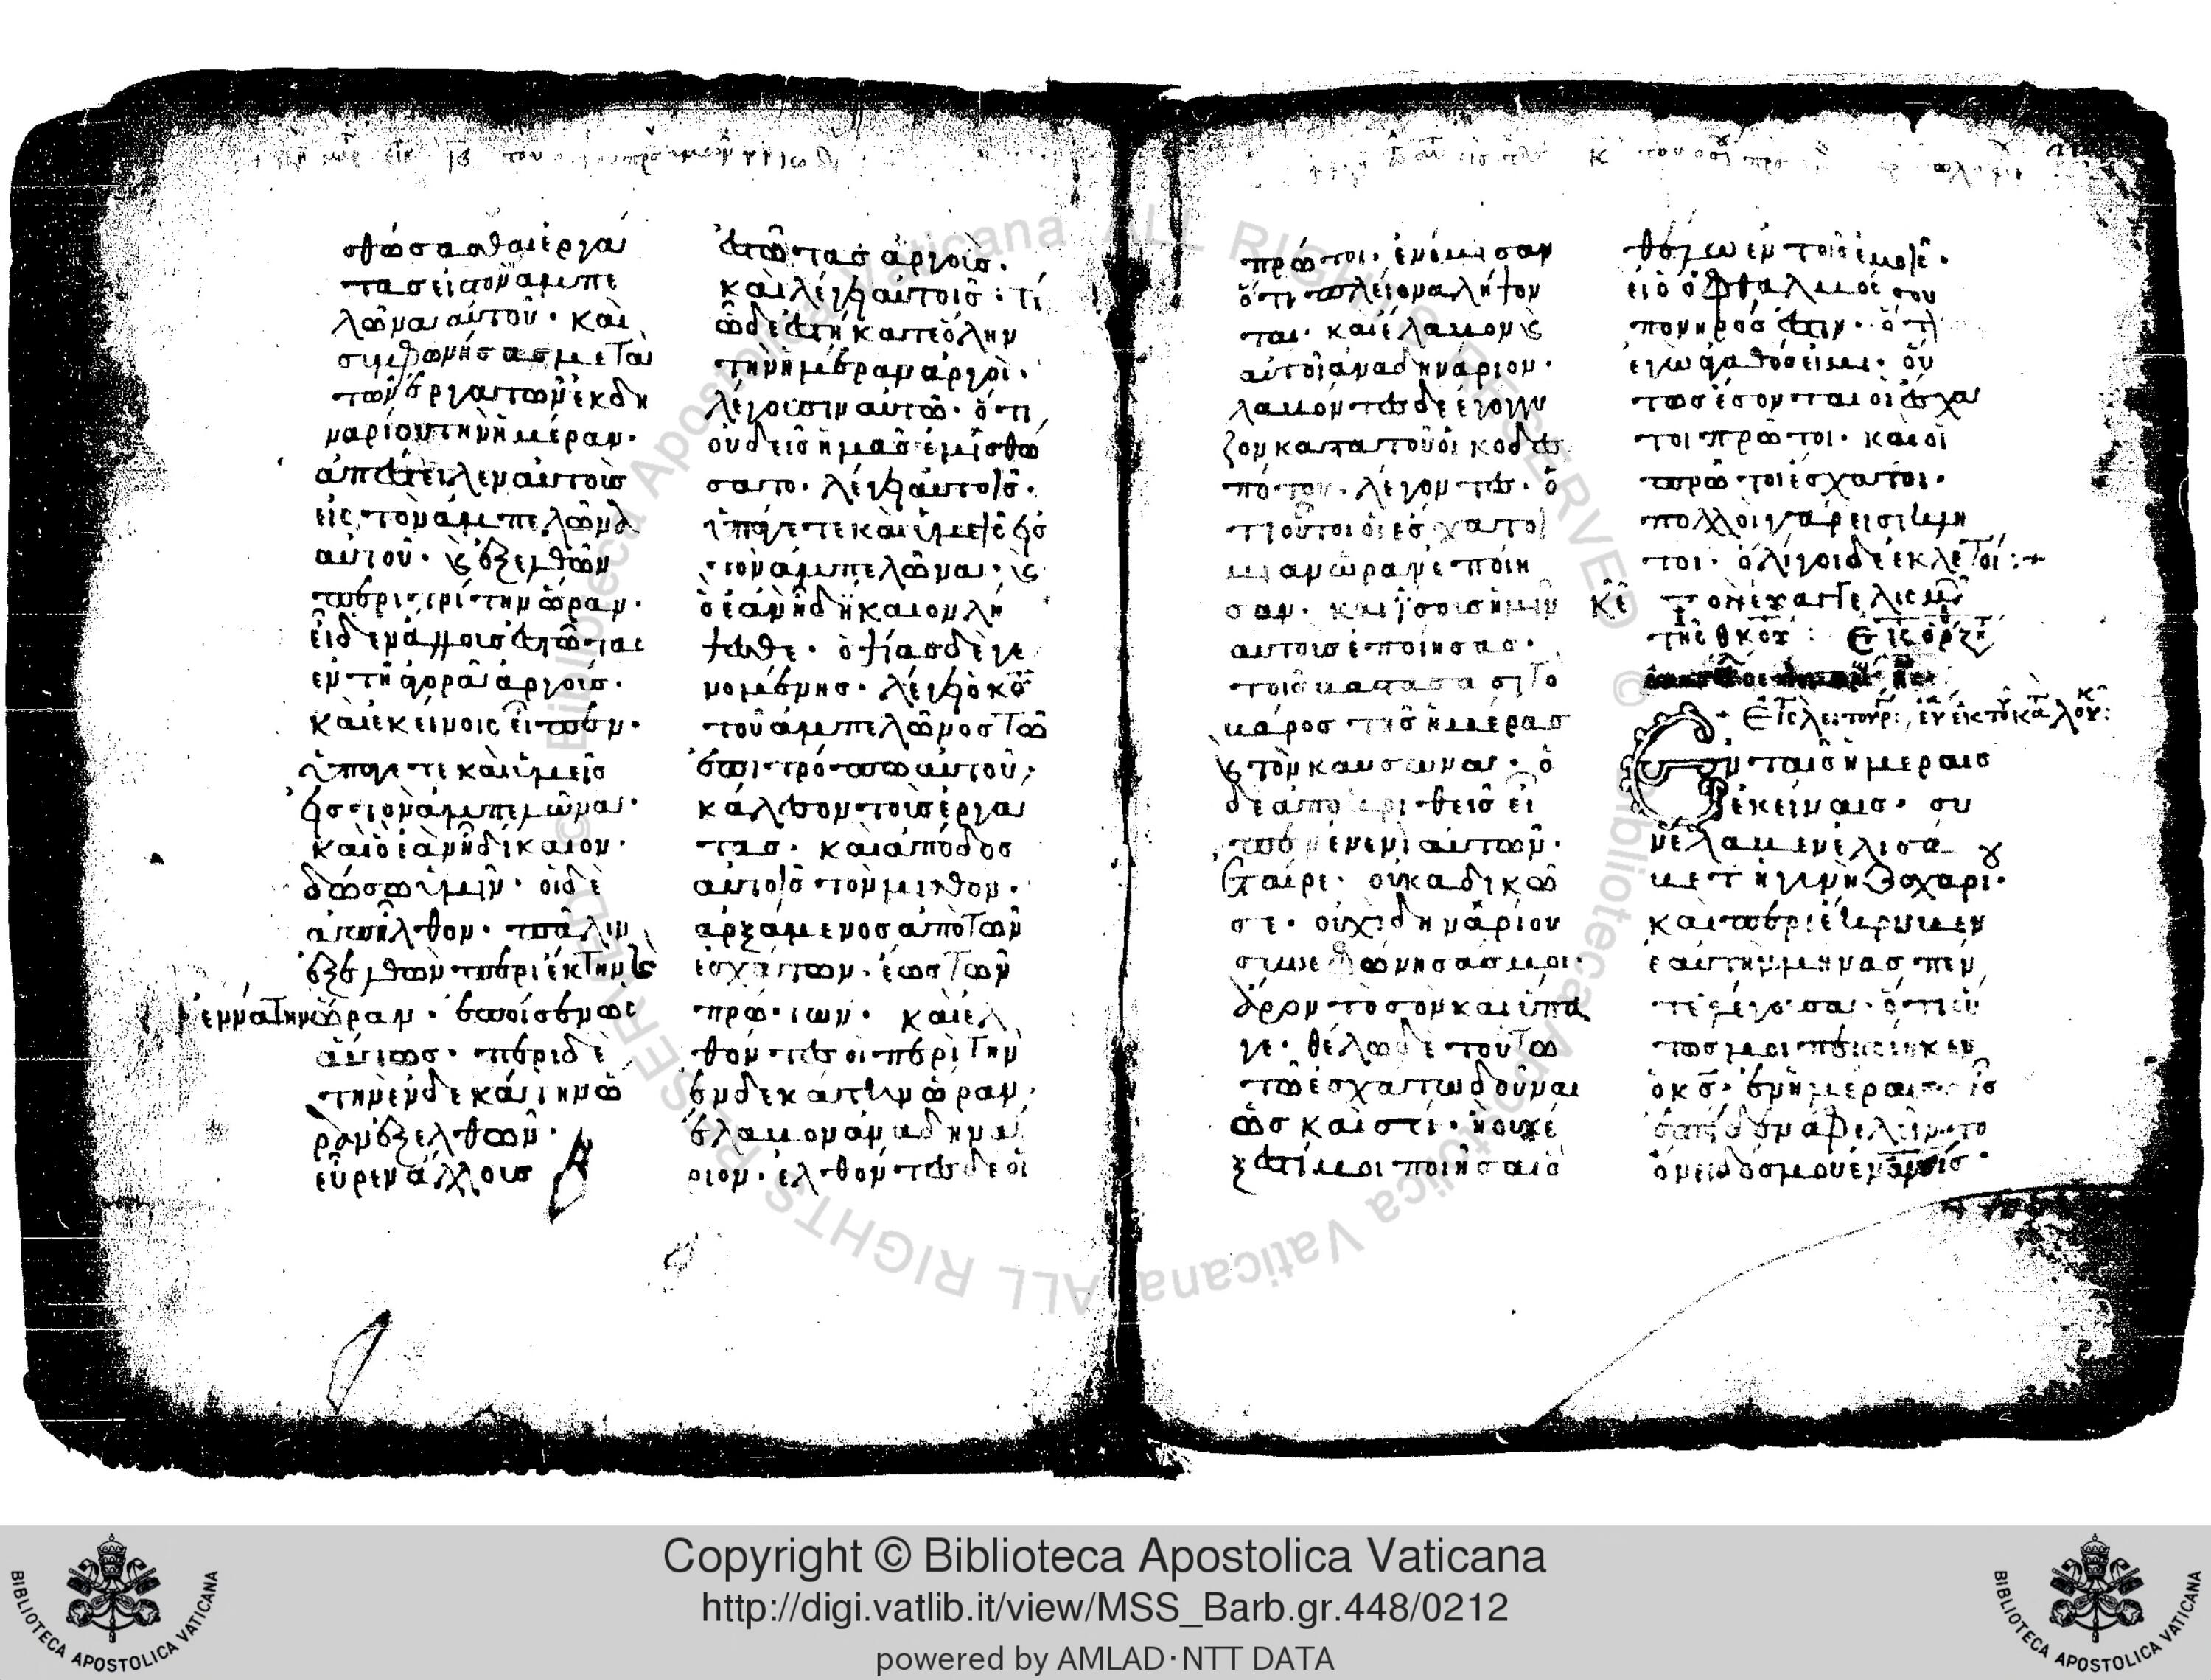 σθώσασθαι ἐργά
τας εἰς τὸν ἀμπε
λῶνα αὐτοῦ· καὶ
συμφωνήσας μετὰ
τῶν ἐργατῶν ἐκ δη
ναρίου τὴν ἡμέραν·
ἀπέστειλεν αὐτοὺς
εἰς τὸν ἀμπελῶνα
αὐτοῦ· καὶ ἐξελθὼν
περὶ τρίτην ὥραν·
εἶδεν ἄλλους ἑστῶτας
ἐν τῇ ἀγορᾷ ἀργούς·
κἀκείνοις εἶπεν·
ὑπάγετε καὶ ὑμεῖς
εἰς τὸν ἀμπελῶνα·
καὶ ὃ ἐὰν ᾖ δίκαιον·
δώσω ὑμῖν· οἱ δὲ
ἀπῆλθον· πάλιν
ἐξελθὼν περὶ ἕκτην καὶ
ἐννάτην ὥραν· ἐποίησεν ὡσ
αύτως· περὶ δὲ
τὴν ἑνδεκάτην ὥ
ραν ἐξελθὼν·
εὗρεν ἄλλους
ἑστῶτας ἀργούς·
καὶ λέγει αὐτοῖς· τί
ὧδε ἑστήκατε ὅλην
τὴν ἡμέραν ἀργοί·
λέγουσιν αὐτῷ· ὅτι
οὐδεὶς ἡμᾶς ἐμισθώ
σατο· λέγει αὐτοῖς·
ὑπάγετε καὶ ὑμεῖς εἰς
τὸν ἀμπελῶνα· καὶ
ὃ ἐὰν ᾖ δίκαιον λή
ψεσθε· ὀψίας δὲ γε
νομένης· λέγει ὁ κς
τοῦ ἀμπελῶνος τῷ
ἐπιτρόπῳ αὐτοῦ·
κάλεσον τοὺς ἐργά
τας· καὶ ἀπόδος
αὐτοῖς τὸν μισθόν·
ἀρξάμενος ἀπὸ τῶν
ἐσχάτων· ἕως τῶν
πρώτων· καὶ ἐλ
θόντες οἱ περὶ τὴν
ἑνδεκάτην ὥραν·
ἔλαβον ἀνὰ δηνά
ριον· ἐλθόντες δὲ οἱ
πρῶτοι· ἐνόμισαν
ὅτι πλείονα λήψον
ται· καὶ ἔλαβον καὶ
αὐτοὶ ἀνὰ δηνάριον·
λαβόντες δὲ ἐγόγγυ
ζον κατὰ τοῦ οἰκοδεσ
πότου· λέγοντες· ὅ
τι οὗτοι οἱ ἔσχατοι
μίαν ὥραν ἐποίη
σαν· καὶ ἴσους ἡμῖν
αὐτοὺς ἐποίησας·
τοῖς βαστάσασι τὸ
βάρος τῆς ἡμέρας
καὶ τὸν καύσωνα· ὁ
δὲ ἀποκριθεὶς εἶ
πεν ἑνὶ αὐτῶν·
ἑταῖρε· οὐκ ἀδικῶ
σε· οὐχὶ δηναρίου
συνεφώνησάς μοι·
ἆρον τὸ σὸν καὶ ὕπα
γε· θέλω δὲ τούτῳ
τῷ ἐσχάτῳ δοῦναι
ὡς καὶ σοί· ἢ οὐκ ἔ
ξεστί μοι ποιῆσαι ὃ
θέλω ἐν τοῖς ἐμοῖς·
εἰ ὁ ὀφθαλμός σου
πονηρός ἐστιν· ὅτι
ἐγὼ ἀγαθός εἰμι· οὕ
τως ἔσονται οἱ ἔσχα
τοι πρῶτοι· καὶ οἱ
πρῶτοι ἔσχατοι·
πολλοὶ γάρ εἰσι κλη
τοί· ὀλίγοι δὲ ἐκλεκτοί:+
τῆς θκου:
Ἐν ταῖς ἡμέραις
ἐκείναις· συ
νέλαβεν ἐλισάβ
ετ ἡ γυνὴ ζαχαρί·
καὶ περιέκρυβεν
ἑαυτὴν μῆνας πέν
τε λέγουσα· ὅτι οὕ
τως μοι πεποίηκεν
ὁ κς· ἐν ἡμέραις αἷς
ἐπεῖδεν ἀφελεῖν τὸ
ὄνειδός μου ἐν ἀνοις·
Copyright © Biblioteca Apostolica Vaticana
http://digi.vatlib.it/view/MSS_Barb.gr.448/0212
powered by AMLAD·NTT DATA
BIBLIOTECA APOSTOLICA VATICANA
BIBLIOTECA APOSTOLICA VATICANA